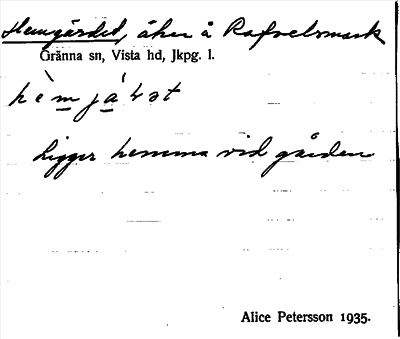 Hemgärdet, åker å Rafvelsmark
Gränna sn, Vista hd, Jkpg. l.
Ligger hemma vid gården
Alice Petersson 1935.